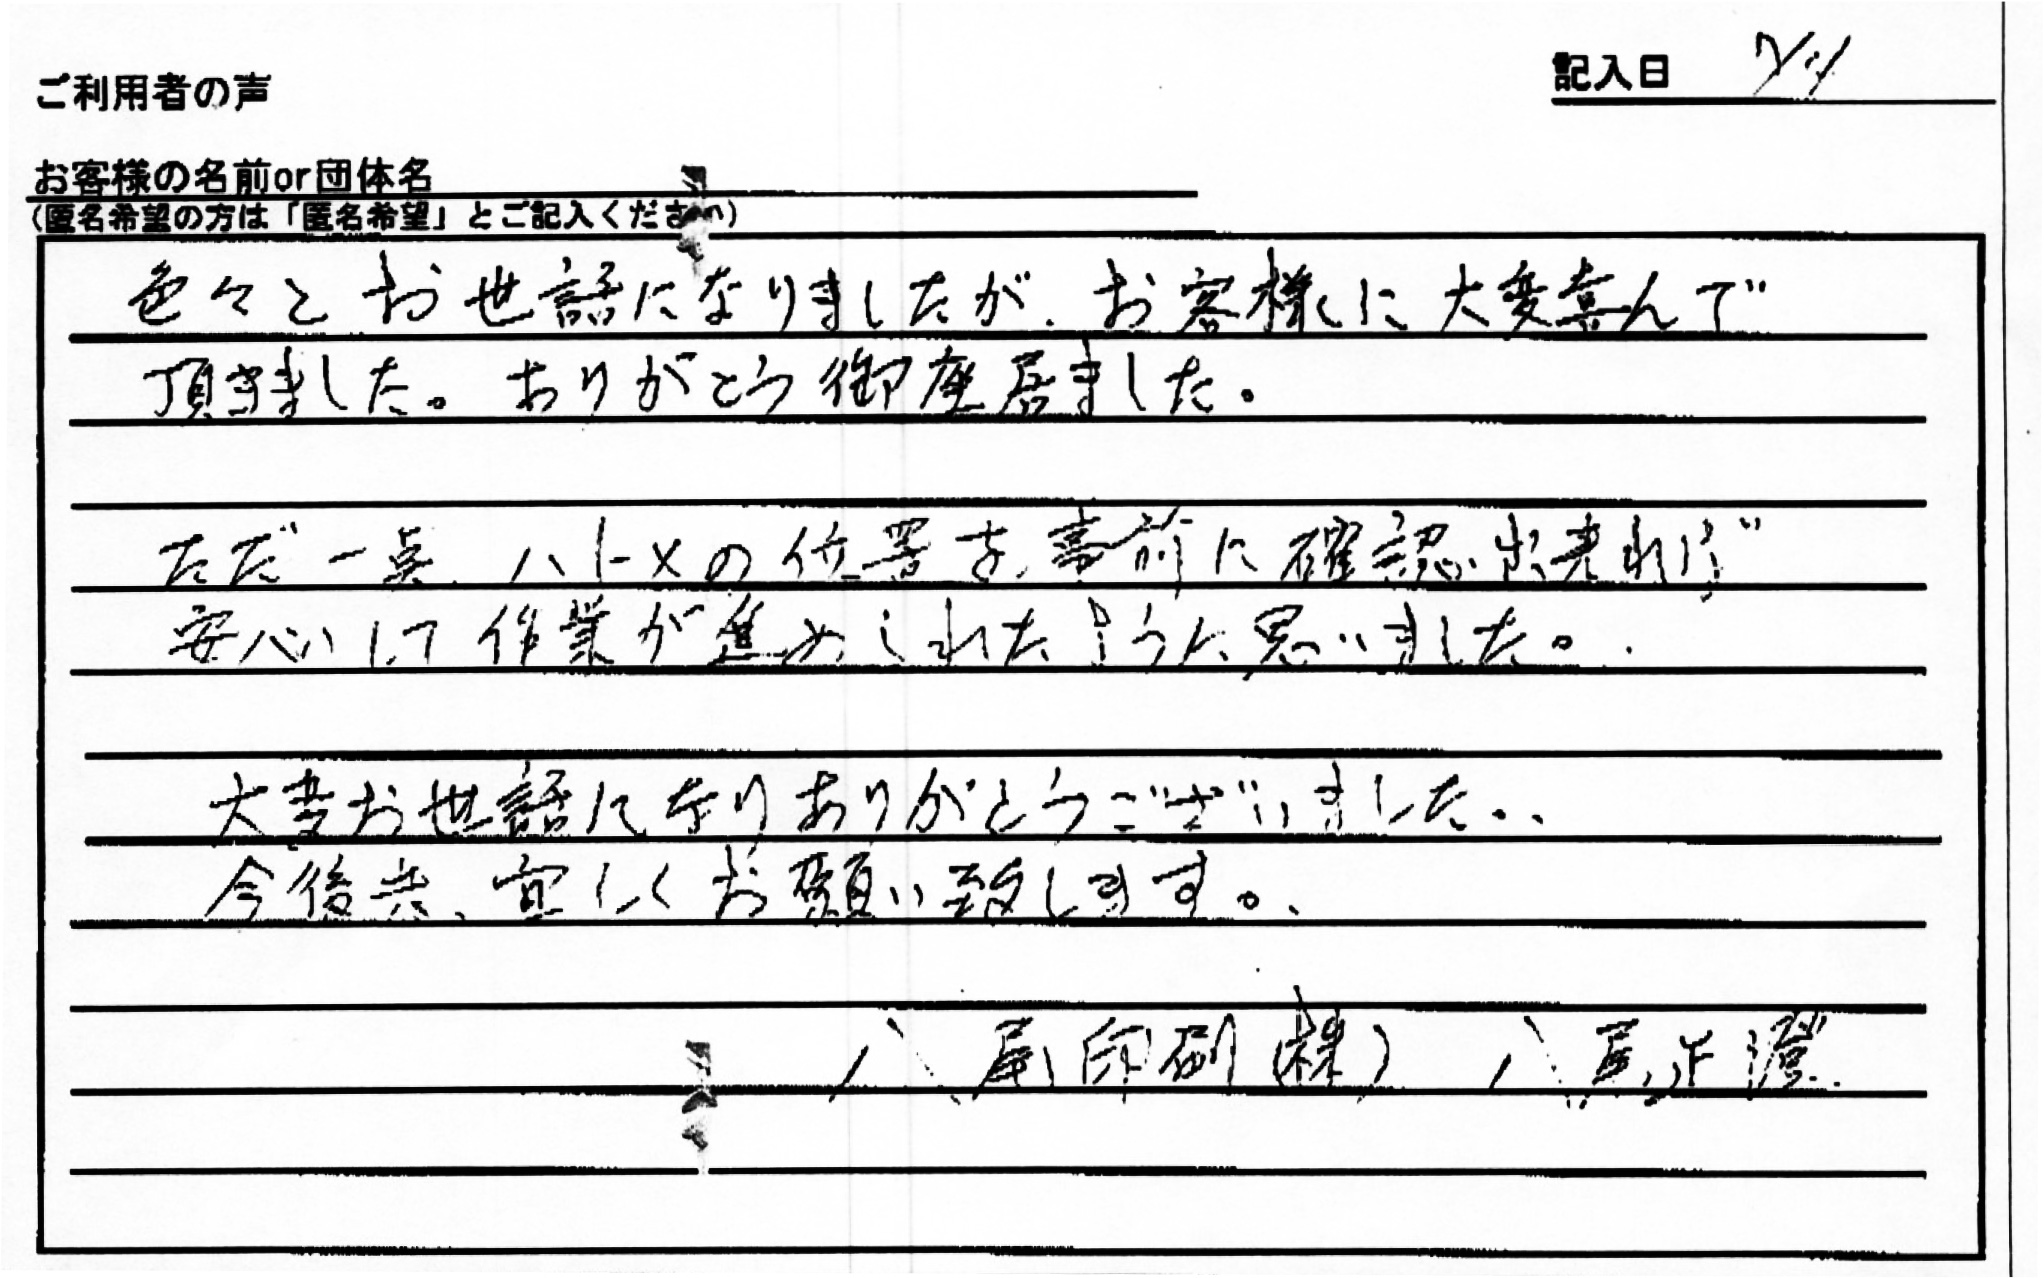 ご利用者の声
記入日
お客様の名前or団体名
(匿名希望の方は「匿名希望」とご記入ください)
色々とお世話になりましたが、お客様に大変喜んで
頂きました。ありがとう御座居ました。
ただ一点、ハトメの位置を事前に確認出来れば
安心して作業が進めれたように思いました。
大変お世話になりありがとうございました。
今後共、宜しくお願い致します。
八尾印刷(株) 八尾